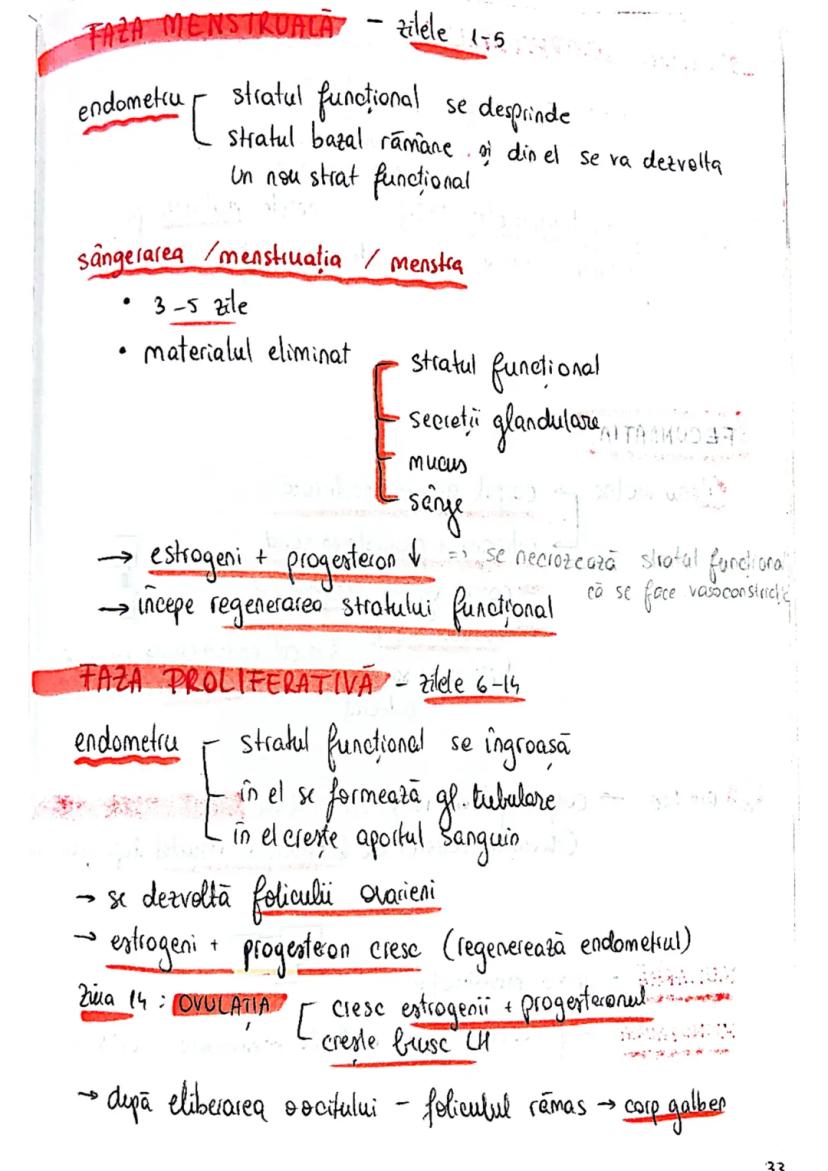 FAZA MENSTRUALĂ - zilele 1-5
endometru
stratul funcțional se desprinde
stratul bazal rămâne și din el se va dezvolta
un nou strat funcțional
sângerarea / menstruația / menstra
• 3-5 zile
• materialul eliminat
stratul funcțional
secreții glandulare
mucus
sânge
→ estrogeni + progesteron ↓ => se necrozează stratul funcțional
că se face vasoconstricție
→ începe regenerarea stratului funcțional
FAZA PROLIFERATIVĂ - zilele 6-14
endometru
stratul funcțional se îngroașă
în el se formează gl. tubulare
în el crește aportul sanguin
→ se dezvoltă foliculii ovarieni
→ estrogeni + progesteron cresc (regenerează endometrul)
Ziua 14 : OVULAȚIA
cresc estrogenii + progesteronul
crește brusc LH
→ după eliberarea oocitului - foliculul rămas → corp galben
33